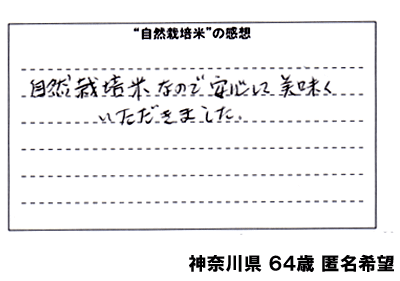 “自然栽培米”の感想
自然栽培米なので安心して美味く
いただきました。
神奈川県 64歳 匿名希望